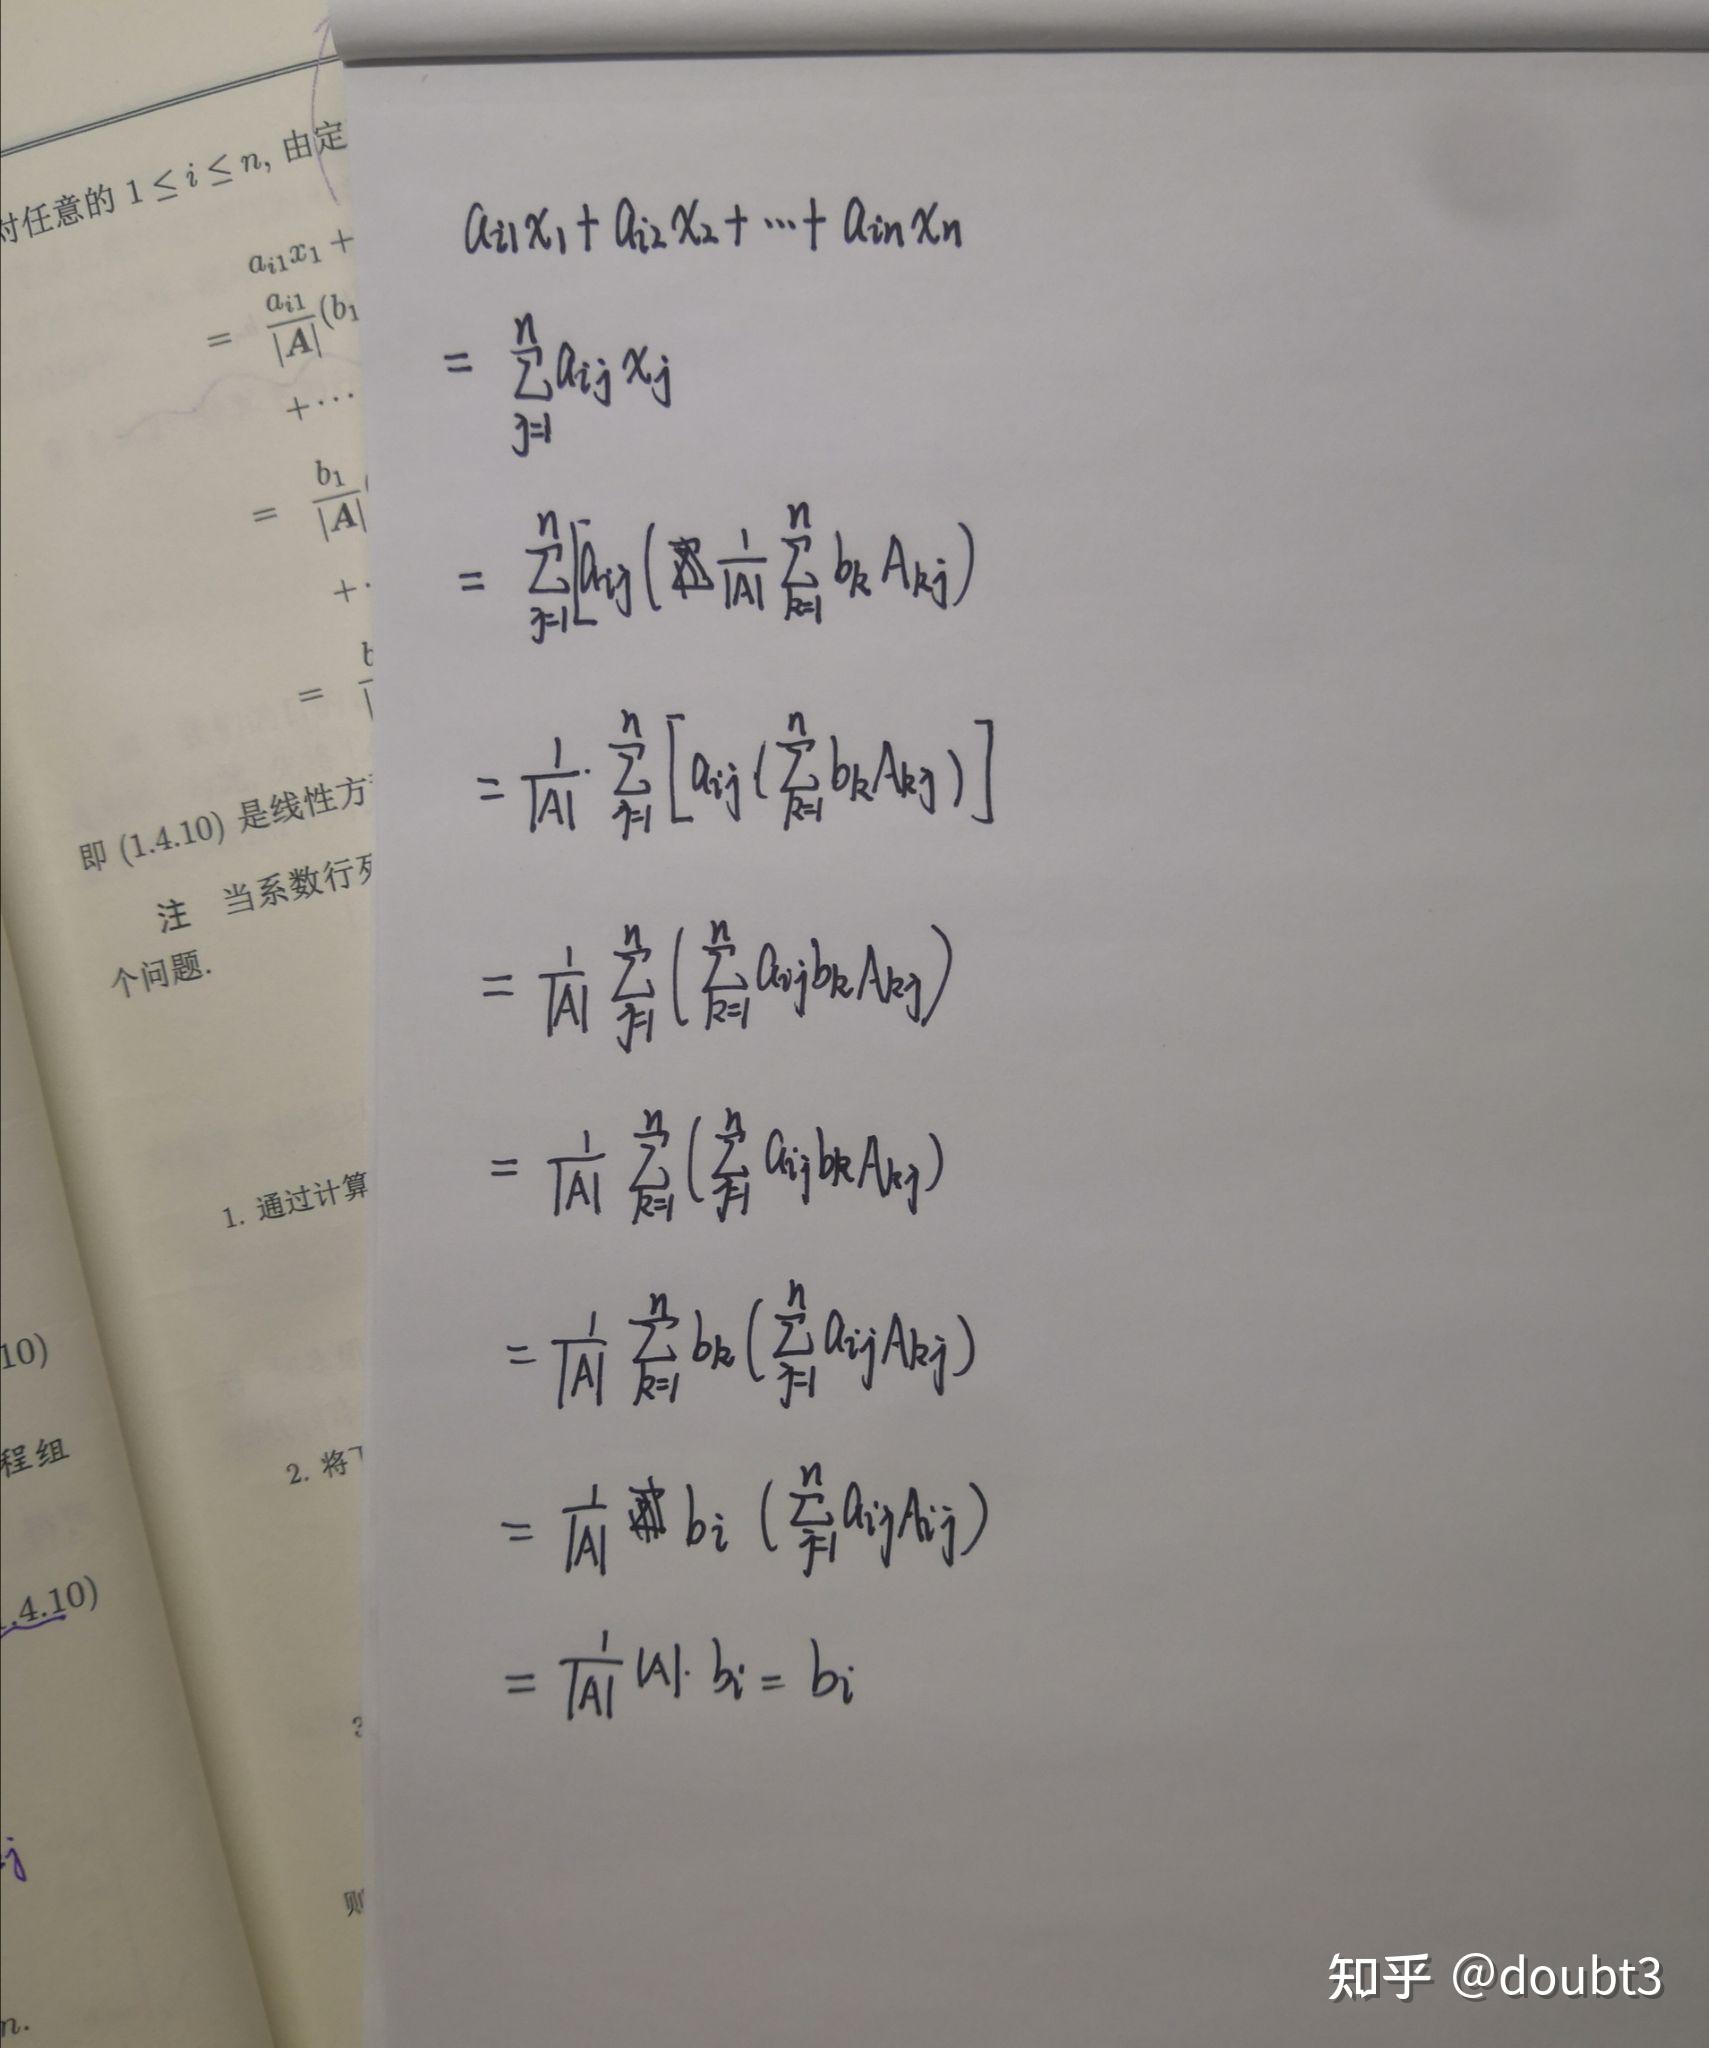 对任意的 1 ≤ i ≤ n, 由定
a_{i1}x_1 +
= \frac{a_{i1}}{|A|}(b_1
+ ⋯
= \frac{b_1}{|A|}(
+ ·
=
即 (1.4.10) 是线性方
注 当系数行列
个问题.
1. 通过计算
2. 将
则
10)
程组
.4.10)
j
n.
a_{i1}x_1 + a_{i2}x_2 + ⋯ + a_{in}x_n
= \sum_{j=1}^{n} a_{ij} x_j
= \sum_{j=1}^{n} [a_{ij} ( \frac{1}{|A|} \sum_{k=1}^{n} b_k A_{kj} )
= \frac{1}{|A|} · \sum_{j=1}^{n} [ a_{ij} ( \sum_{k=1}^{n} b_k A_{kj} ) ]
= \frac{1}{|A|} \sum_{j=1}^{n} ( \sum_{k=1}^{n} a_{ij} b_k A_{kj} )
= \frac{1}{|A|} \sum_{k=1}^{n} ( \sum_{j=1}^{n} a_{ij} b_k A_{kj} )
= \frac{1}{|A|} \sum_{k=1}^{n} b_k ( \sum_{j=1}^{n} a_{ij} A_{kj} )
= \frac{1}{|A|} b_i ( \sum_{j=1}^{n} a_{ij} A_{ij} )
= \frac{1}{|A|} |A| · b_i = b_i
知乎 @doubt3